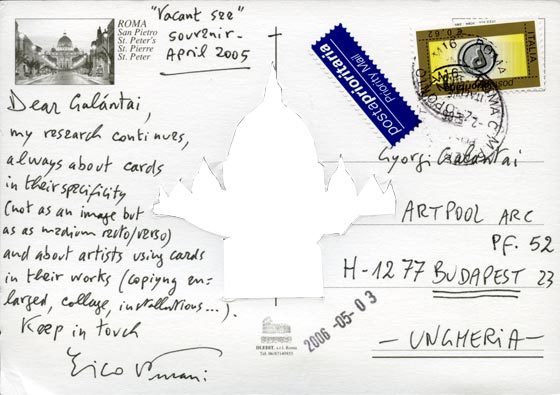 ROMA
San Pietro
St. Peter's
St. Pierre
St. Peter
"Vacant see"
souvenir-
April 2005
postaprioritaria
Priority Mail
ITALIA
€ 0,62
ROMA
Dear Galántai,
my research continues,
always about cards
in their specifility
(not as an image but
as as medium recto/verso)
and about artists using cards
in their works (copiyng en=
larged, collage, installations...).
Keep in touch
Gyorgi Galantai
ARTPOOL ARC
PF. 52
H-1277 BUDAPEST 23
- UNGHERIA -
2006 -05- 03
s.r.l. Roma